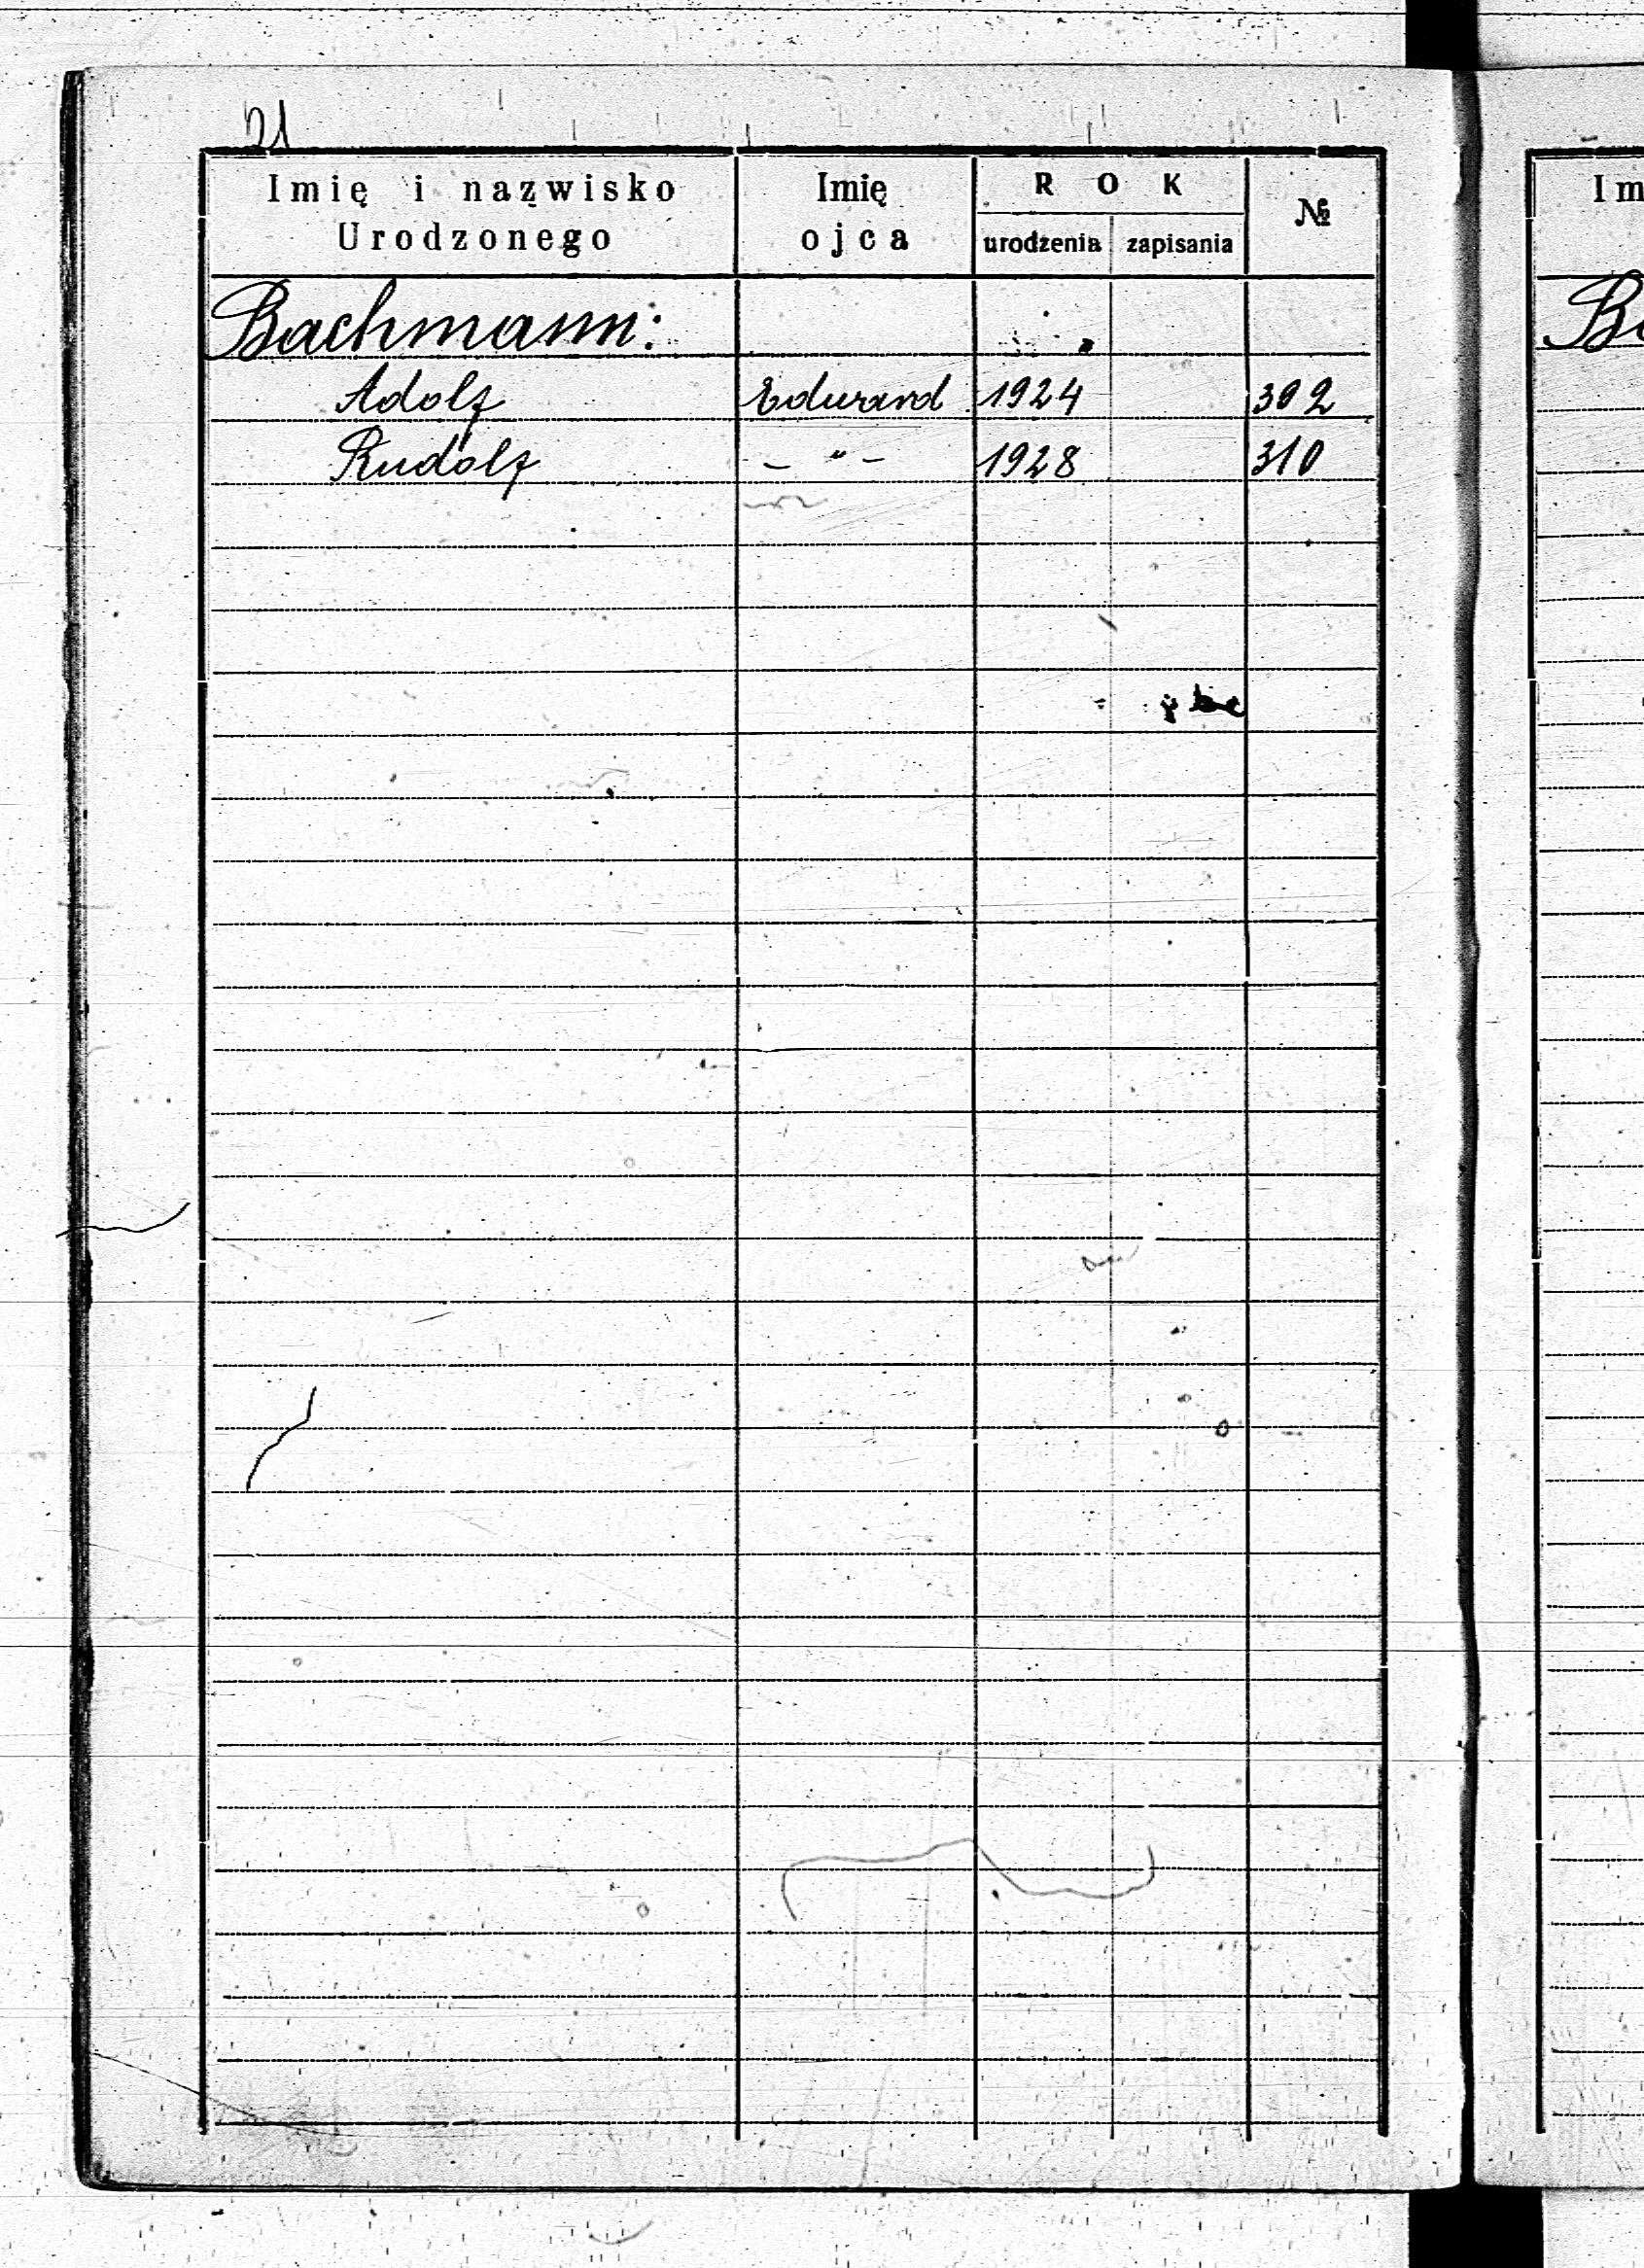 21
Imię i nazwisko Urodzonego Imię ojca ROK urodzenia zapisania №
Bachmann:
Adolf Edward 1924 302
Rudolf – " – 1928 310